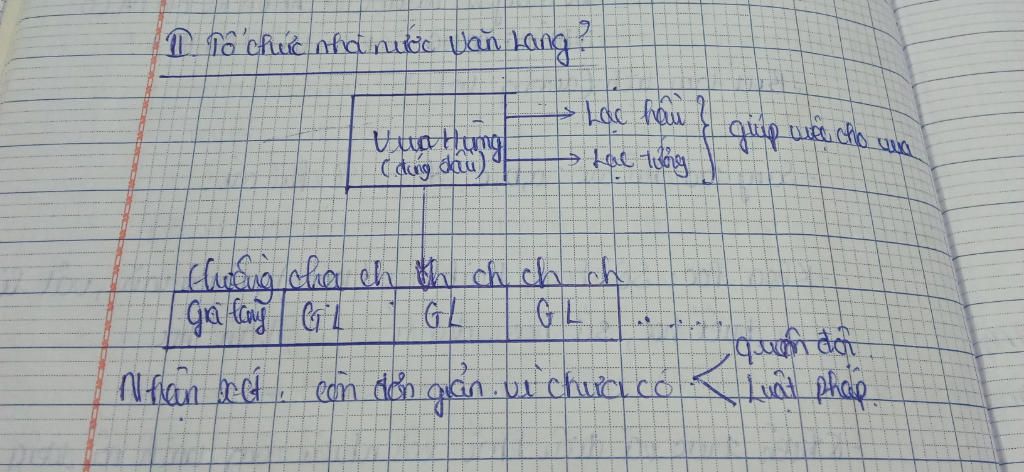 II. Tổ chức nhà nước Văn Lang?
Vua Hùng
(đứng đầu)
Lạc hầu
Lạc tướng
giúp việc cho vua
chiềng chạ ch ch ch ch ch
già làng GL GL GL .......
Nhận xét: còn đơn giản. vì chưa có
quân đội
Luật pháp.